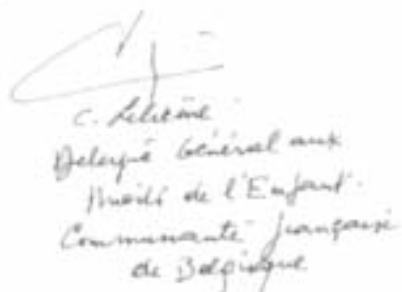 C. Lelièvre
Délégué Général aux
Droits de l'Enfant.
Communauté française
de Belgique